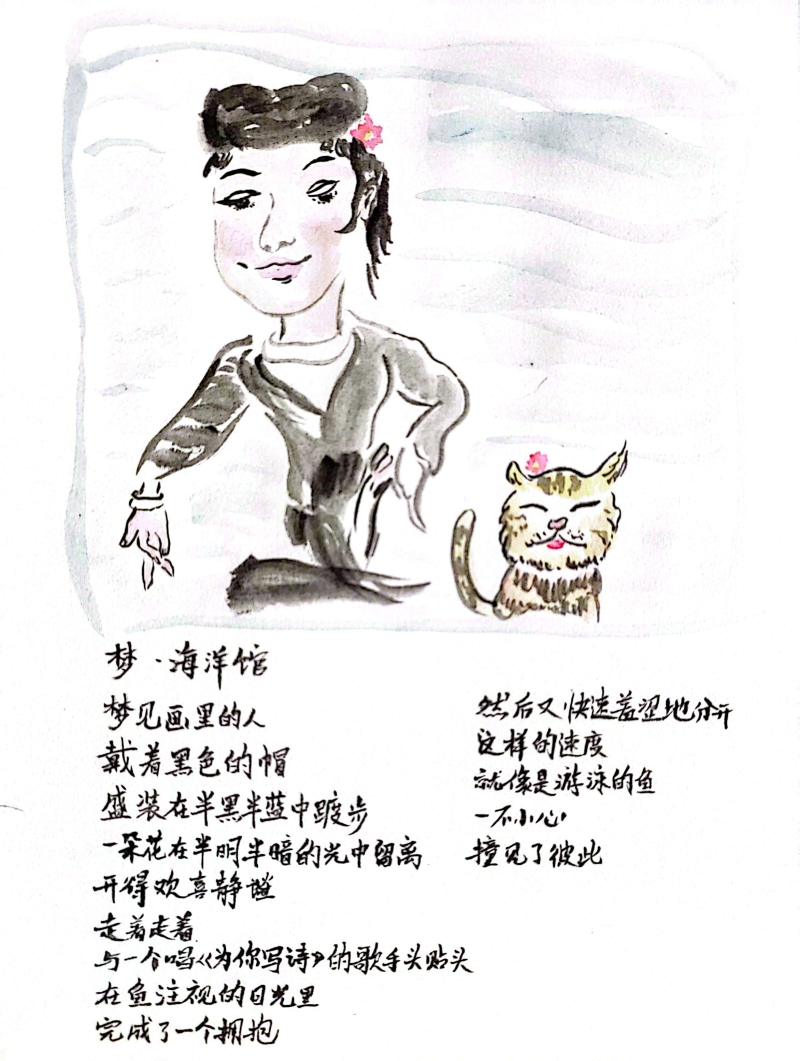 梦·海洋馆
梦见画里的人
戴着黑色的帽
盛装在半黑半蓝中踱步
一朵花在半明半暗的光中留离
开得欢喜静谧
走着走着
与一个唱《为你写诗》的歌手头贴头
在鱼注视的目光里
完成了一个拥抱
然后又快速羞涩地分开
这样的速度
就像是游泳的鱼
一不小心
撞见了彼此